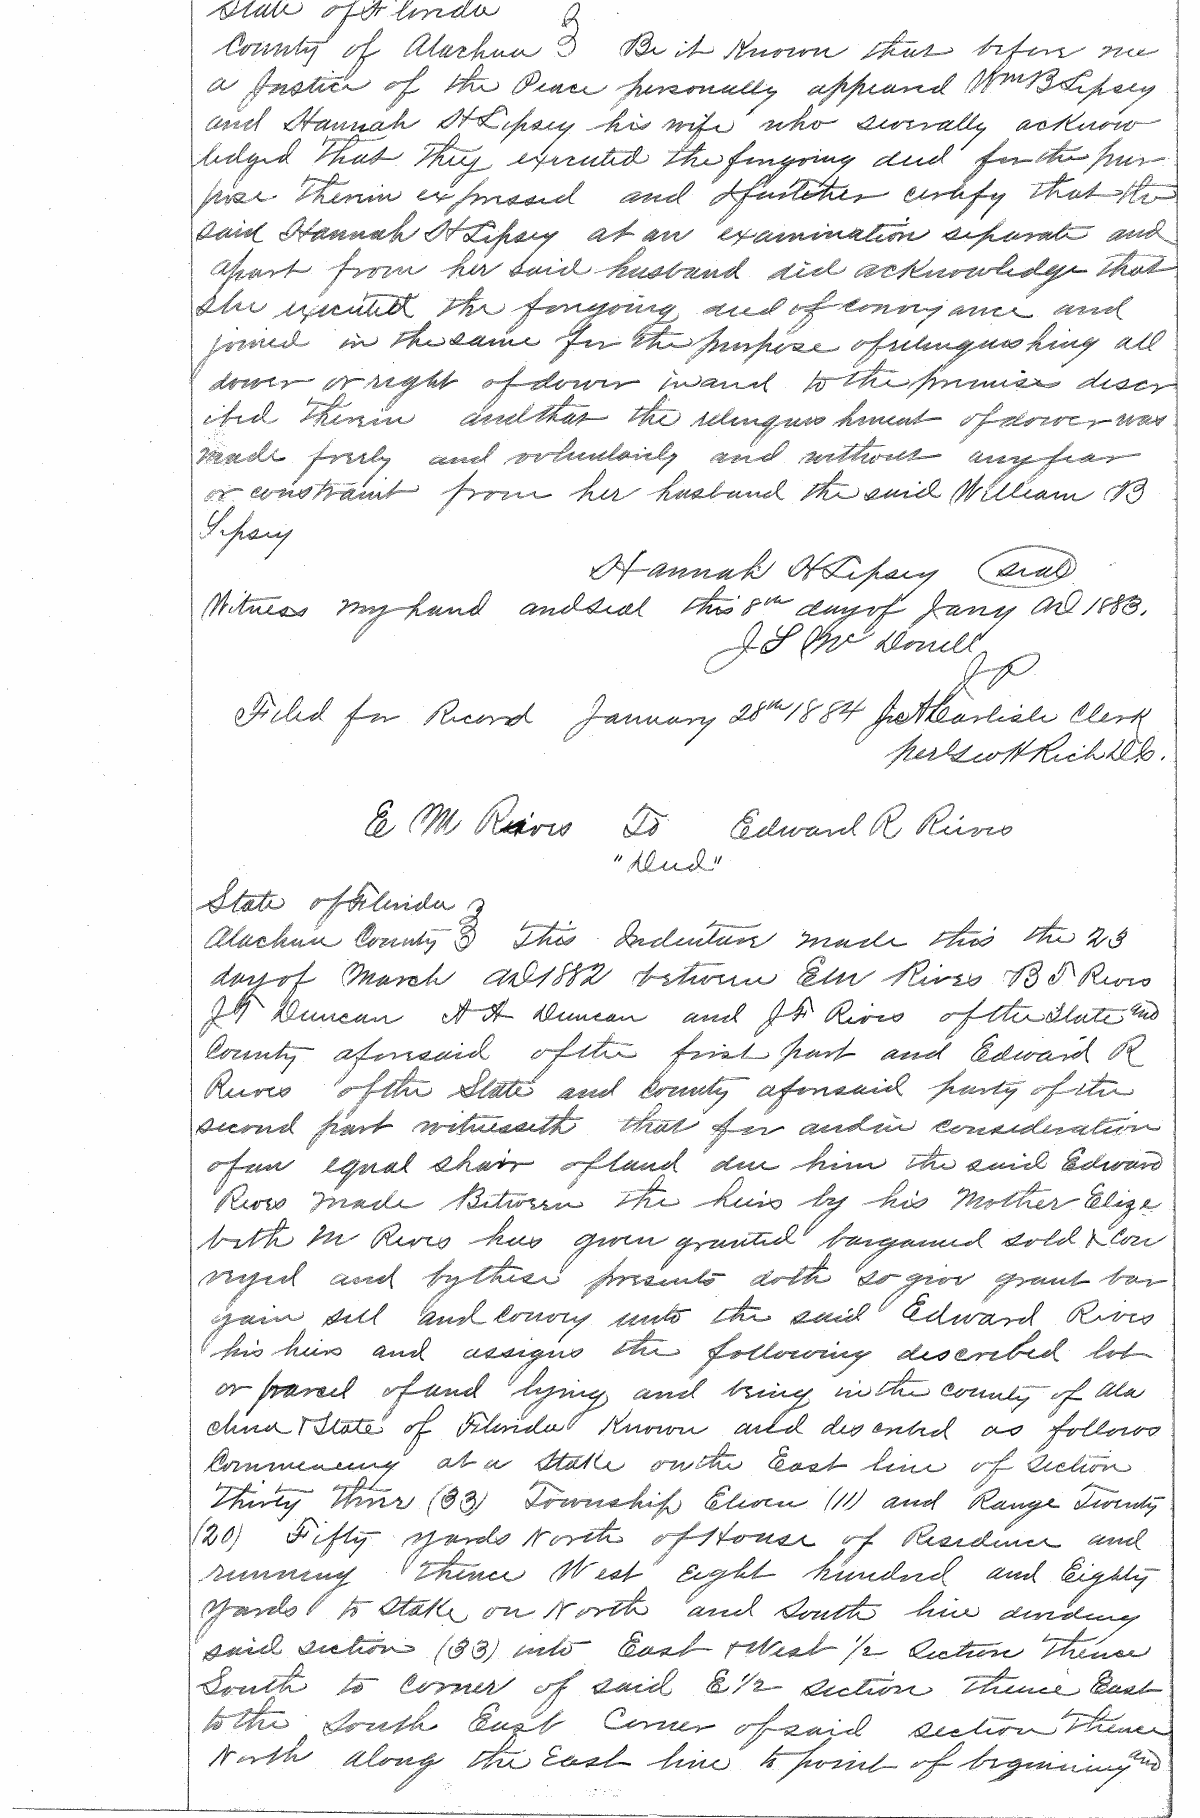 State of Florida
County of Alachua } Be it Known that before me
a Justice of the Peace personally appeared Wm B Lipsey
and Hannah H Lipsey his wife who severally acknow
ledged that they executed the forgoing deed for the pur
pose therein expressed and I further certify that the
said Hannah H Lipsey at an examination separate and
apart from her said husband did acknowledge that
she executed the forgoing deed of conveyance and
joined in the same for the purpose of relinquishing all
dower or right of dower in and to the premises descr
ibed therein and that the relinquishment of dower was
made freely and voluntarily and without any fear
or constraint from her husband the said William B
Lipsey
Hannah H Lipsey seal
Witness my hand and seal this 8th day of Jany AD 1883.
J L McDonell
J P
Filed for Record January 28th 1884 Carlisle Clerk
per Geo H Rich D.C.
E M Reives To Edward R Reives
"Deed"
State of Florida }
Alachua County } This Indenture made this the 23
day of March AD 1882 between E M Rives B T Reves
J T Duncan A A Duncan and J F Rives of the State and
County aforesaid of the first part and Edward R
Reeves of the State and County aforesaid party of the
second part witnesseth that for and in consideration
of an equal shair of land due him the said Edward
Reves made Between the heirs by his Mother Eliza
beth M Reves has given granted bargained sold & con
veyed and by these presents doth so give grant bar
gain sell and convey unto the said Edward Rives
his heirs and assigns the following described lot
or parcel of land lying and being in the county of Ala
chua & State of Florida Known and described as follows
Commencing at a Stake on the East line of Section
Thirty three (33) Township Eleven (11) and Range Twenty
(20) Fifty yards North of House of Residence and
running thence West Eight hundred and Eighty
Yards to Stake on North and South line dividing
said section (33) into East & West 1/2 Section thence
South to corner of said E 1/2 section thence East
to the South East Corner of said section thence
North along the East line to point of beginning and